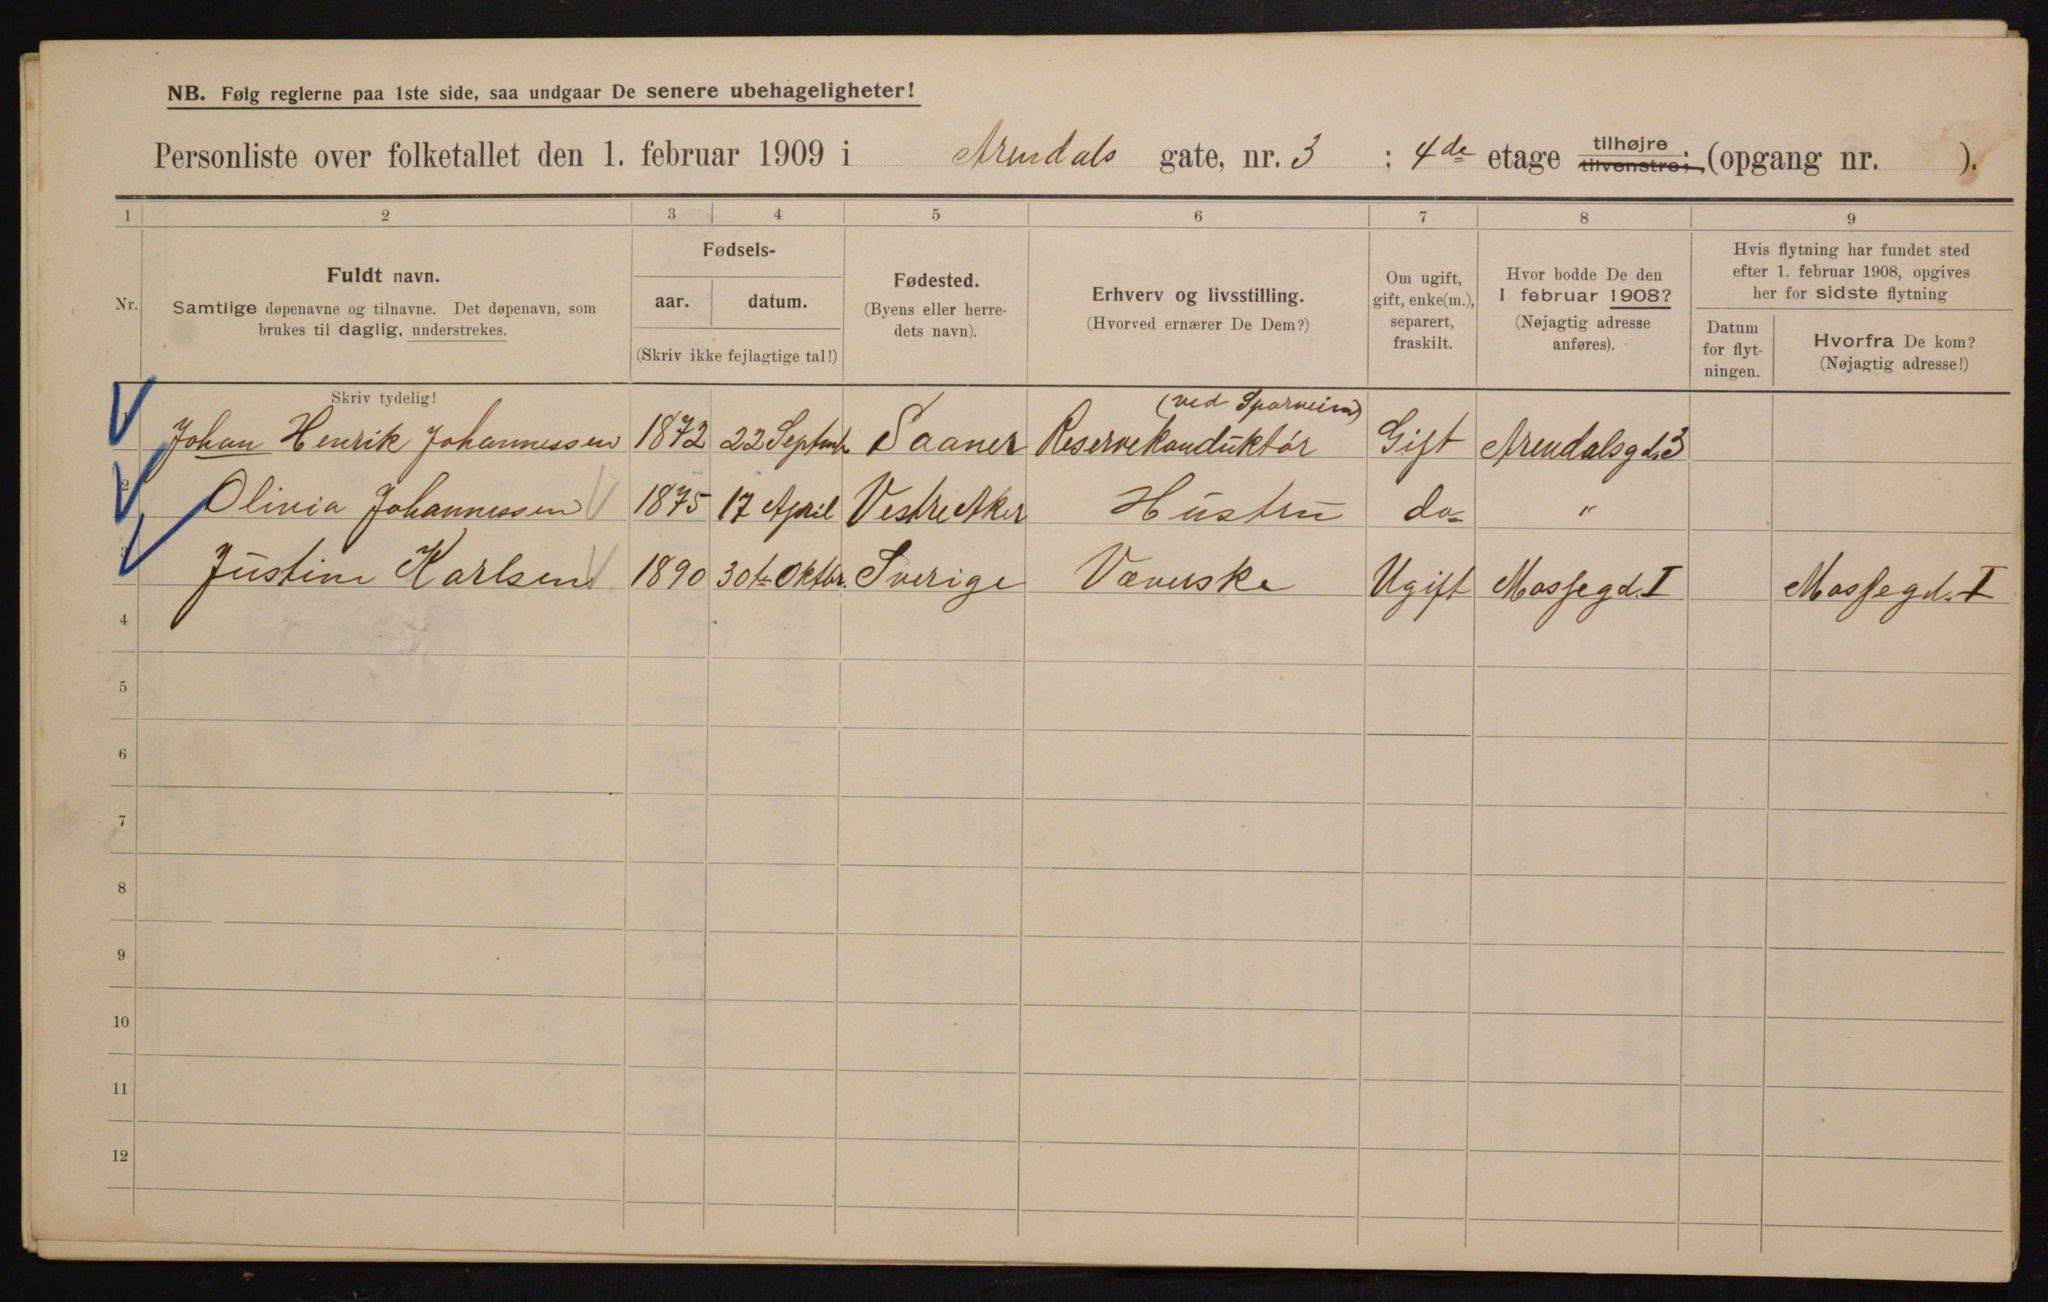 NB. Følg reglerne paa 1ste side, saa undgaar De senere ubehageligheter!
Personliste over folketallet den 1. februar 1909 i Arendals gate, nr. 3 ; 4de etage tilhøjre tilvenstre; (opgang nr. ).
1 2 3 4 5 6 7 8 9
Nr. Fuldt navn. Samtlige døpenavne og tilnavne. Det døpenavn, som brukes til daglig, understrekes.
Fødsels-
aar. datum.
(Skriv ikke fejlagtige tal!)
Fødested. (Byens eller herredets navn).
Erhverv og livsstilling. (Hvorved ernærer De Dem?)
Om ugift, gift, enke(m.), separert, fraskilt.
Hvor bodde De den 1 februar 1908? (Nøjagtig adresse anføres).
Hvis flytning har fundet sted efter 1. februar 1908, opgives her for sidste flytning
Datum for flytningen.
Hvorfra De kom? (Nøjagtig adresse!)
Skriv tydelig!
(ved Sporveien)
Johan Henrik Johannessen 1872 22 Septmb. Saaner Reservekonduktør Gift Arendalsgd. 3
2 Olivia Johannessen 1875 17 April Vestre Aker Hustru do "
3 Justine Karlsen 1890 30te Oktbr. Sverige Væverske Ugift Mossegd. I Mossegd. I
4
5
6
7
8
9
10
11
12